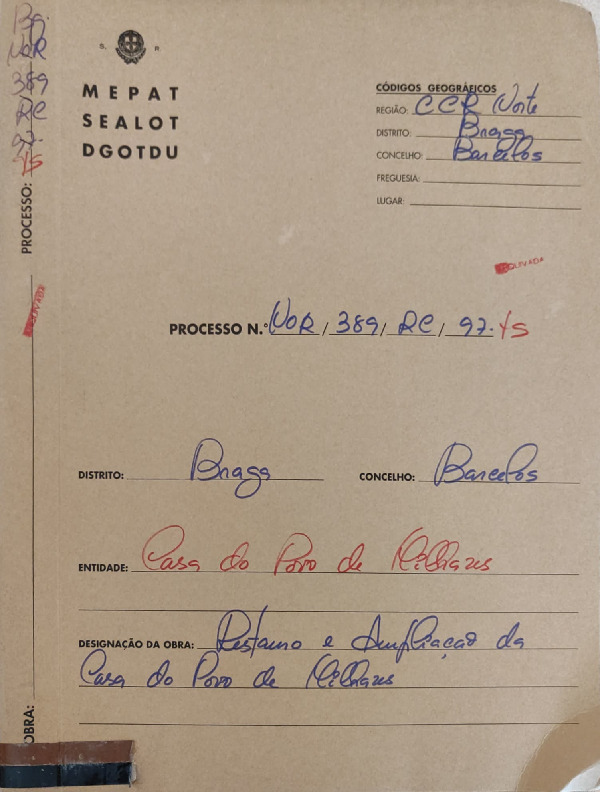 S. R.
MEPAT
SEALOT
DGOTDU
CÓDIGOS GEOGRÁFICOS
REGIÃO: CCR Norte
DISTRITO: Braga
CONCELHO: Barcelos
FREGUESIA:
LUGAR:
PROCESSO N.º NOR / 389 / RC / 97. YS
DISTRITO: Braga
CONCELHO: Barcelos
ENTIDADE: Casa do Povo de Milhazes
DESIGNAÇÃO DA OBRA: Restauro e Ampliação da
Casa do Povo de Milhazes
PROCESSO:
Bg.
NOR
389
RC
97.
YS
OBRA: